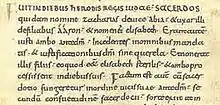 FUIT IN DIEBUS HERODIS REGIS IUDAEAE SACERDOS
quidam nomine zacharias de uice abia & uxor illi
de filiabus aaron & nomen eius elisabeth Erant autem
iusti ambo ante dm incedentes in omnibus manda
tis & iustificationibus dni sine querela Et non erat
illis filius eo quod & elisabeth sterilis & ambo pro
cessissent in diebus suis Factum est autem cum sacer
dotio fungeretur in ordine uicis suae ante dm se
cundum consuetudinem sacerdotii sorte exiit